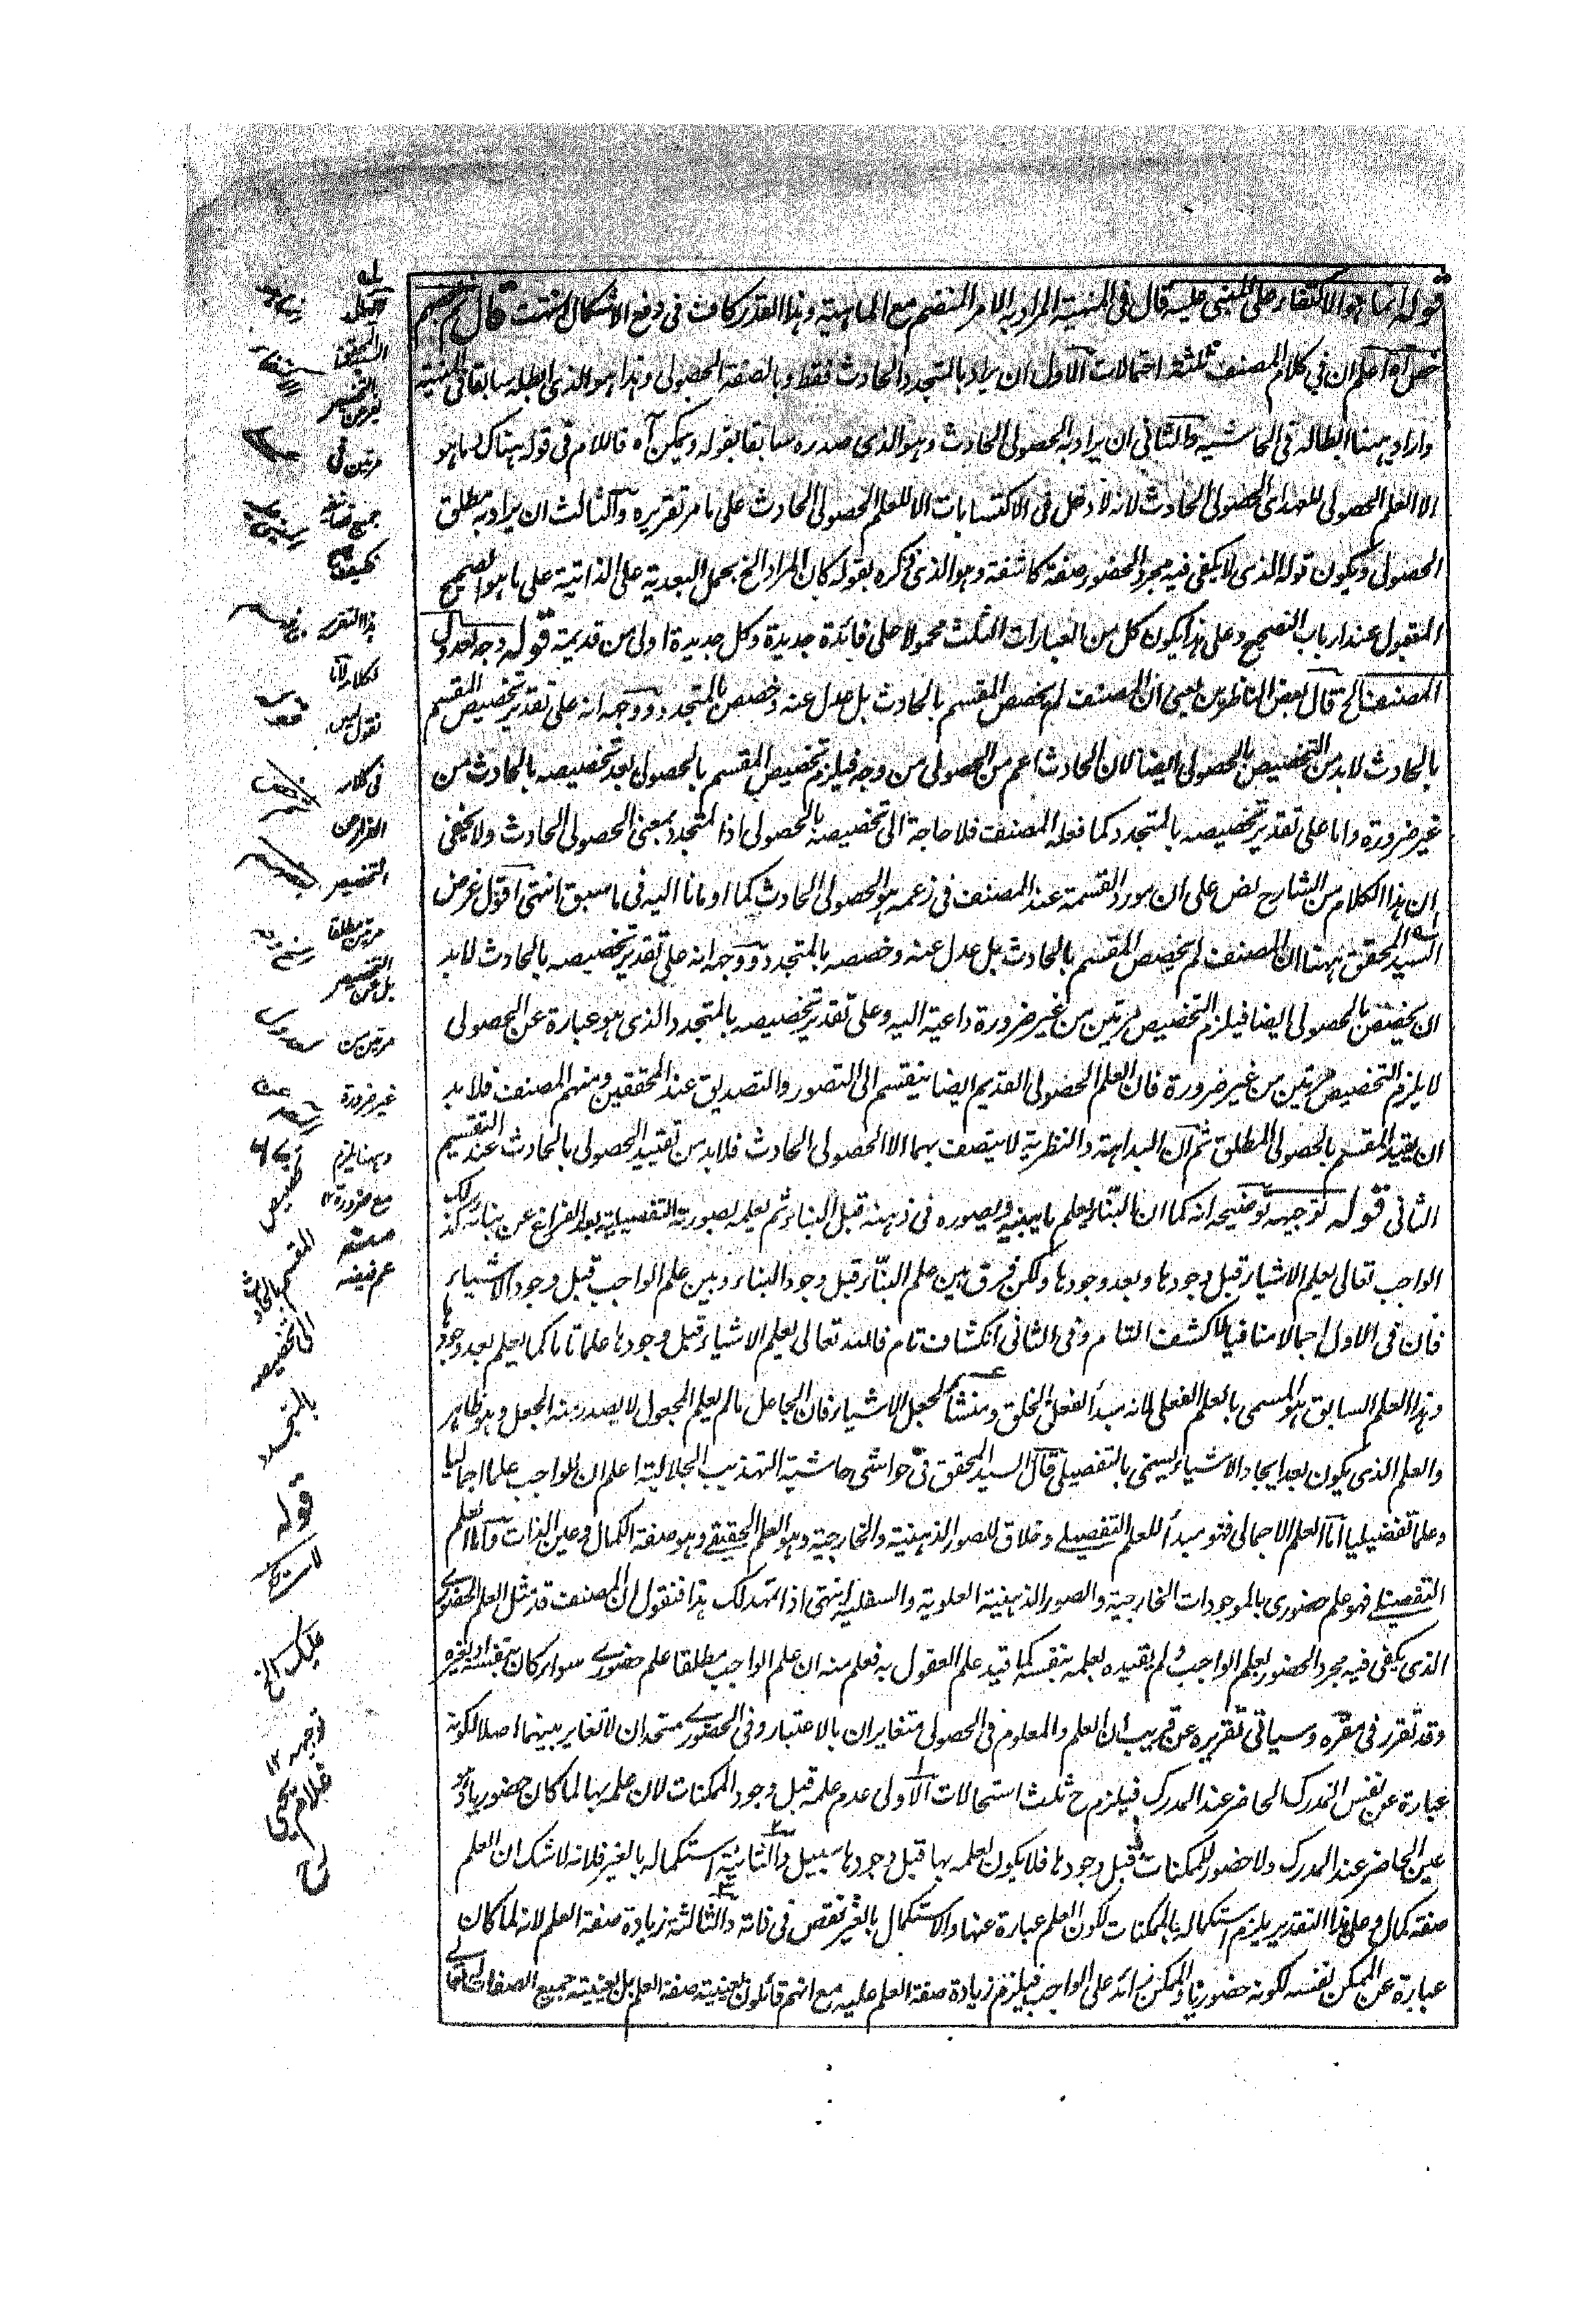 قوله انما هو الاكتفاء على المبنى عليه قال فى المنهية المراد به الامر المنضم مع الماهية وهذا القدر كاف فى دفع الاشكال انتهت قال ثم
خص آه اعلم ان في كلام المصنف ثلثة احتمالات الاول ان يراد بالمتجدد الحادث فقط وبالصفة الحصولى وهذا هو الذى ابطله سابقا فى المنهية
واراد ههنا ابطاله فى الحاشية والثانى ان يراد به الحصولى الحادث وهو الذى صدره سابقا بقوله ويمكن آه فاللام فى قوله هناك ما هو
الا العلم الحصولى للعهد اى الحصولى الحادث لانه لا دخل فى الاكتسابات الا للعلم الحصولى الحادث على ما مر تقريره والثالث ان يراد به مطلق
الحصولى ويكون قوله الذى لا يكفى فيه مجرد الحضور صفة كاشفة وهو الذى ذكره بقوله كان المراد الخ بحمل البعدية على الذاتية على ما هو الصحيح
المقبول عند ارباب التصحيح وعلى هذا يكون كل من العبارات الثلث محمولا على فائدة جديدة وكل جديدة اولى من قديمة قوله وجه عدول
المصنف الخ قال بعض الناظرين يعنى ان المصنف لم يخصص المقسم بالحادث بل عدل عنه وخصص بالمتجدد ووجهه انه على تقدير تخصيص المقسم
بالحادث لا بد من التخصيص بالحصولى ايضا لان الحادث اعم من الحصولى من وجه فيلزم تخصيص المقسم بالحصولى بعد تخصيصه بالحادث من
غير ضرورة واما على تقدير تخصيصه بالمتجدد كما فعله المصنف فلا حاجة الى تخصيصه بالحصولى اذ المتجدد بمعنى الحصولى الحادث ولا يخفى
ان هذا الكلام من الشارح نص على ان مورد القسمة عند المصنف فى زعمه هو الحصولى الحادث كما اومانا اليه فى ما سبق انتهى اقول غرض
السيد المحقق ههنا ان المصنف لم يخصص المقسم بالحادث بل عدل عنه وخصصه بالمتجدد ووجهه انه على تقدير تخصيصه بالحادث لا بد
ان يخصص بالحصولى ايضا فيلزم التخصيص مرتين من غير ضرورة داعية اليه وعلى تقدير تخصيصه بالمتجدد الذى هو عبارة عن الحصولى
لا يلزم التخصيص مرتين من غير ضرورة فان العلم الحصولى القديم ايضا ينقسم الى التصور والتصديق عند المحققين ومنهم المصنف فلا بد
ان يقيد المقسم بالحصولى المطلق ثم ان البداهة والنظرية لا يتصف بهما الا الحصولى الحادث فلا بد من تقييد الحصولى بالحادث عند التقسيم
الثانى قوله توجيهه توضيحه انه كما ان البنّاء يعلم ما يبنيه ويصوره فى ذهنه قبل البناء ثم يعلمه بصورته التفصيلية بعد الفراغ عن بنائه كذلك
الواجب تعالى يعلم الاشياء قبل وجودها وبعد وجودها ولكن فرق بين علم البنّاء قبل وجود البناء وبين علم الواجب قبل وجود الاشياء
فان فى الاول اجمالا منافيا للكشف التام وفى الثانى انكشاف تام فالله تعالى يعلم الاشياء قبل وجودها علما تاما كما يعلم بعد وجودها
وهذا العلم السابق هو المسمى بالعلم الفعلى لانه مبدأ لفعل الخلق ومنشأ لجعل الاشياء فان الجاعل ما لم يعلم المجعول لا يصدر منه الجعل وهو ظاهر
والعلم الذى يكون بعد ايجاد الاشياء يسمى بالتفصيلى قال السيد المحقق فى حواشى حاشية التهذيب الجلالية اعلم ان للواجب علما اجماليا
وعلما تفصيليا اما العلم الاجمالى فهو مبدأ للعلم التفصيلى وخلاق للصور الذهنية والخارجية وهو العلم الحقيقى وهو صفة الكمال وعين الذات واما العلم
التفصيلى فهو علم حضورى بالموجودات الخارجية والصور الذهنية العلوية والسفلية انتهى اذا تمهد لك هذا فنقول ان المصنف قد مثل العلم الحضورى
الذى يكفى فيه مجرد الحضور بعلم الواجب ولم يقيده بعلمه بنفسه كما قيد علم العقول به فعلم منه ان علم الواجب مطلقا علم حضورى سواء كان بنفسه او بغيره
وقد تقرر فى مقره وسياتى تقريره عن قريب ان العلم والمعلوم فى الحصولى متغايران بالاعتبار وفى الحضورى متحدان لا تغاير بينهما اصلا لكونه
عبارة عن نفس المدرك الحاضر عند المدرك فيلزم ح ثلث استحالات الاولى عدم علمه قبل وجود الممكنات لان علمه بها لما كان حضوريا وهو
عين الحاضر عند المدرك ولا حضور للممكنات قبل وجودها فلا يكون لعلمه بها قبل وجودها سبيل والثانية استكماله بالغير فلانه لا شك ان العلم
صفة كمال وعلى هذا التقدير يلزم استكماله بالممكنات لكون العلم عبارة عنها والاستكمال بالغير نقص فى ذاته والثالثة زيادة صفة العلم لانه لما كان
عبارة عن الممكن نفسه لكونه حضوريا والممكن زائد على الواجب فيلزم زيادة صفة العلم عليه مع انهم قائلون بعينية صفة العلم بل بعينية جميع الصفات
السيد المحقق
مرتين فى
هذا التقرير
نقول ليس
فى كلامه
مرتين مطلقا
بل عن التخصيص
مرتين من
غير ضرورة
وههنا يلزم
مع ضرورة ١٢
عم فيضه
تخصيص
المقسم
بالحادث
الى تخصيصه
بالمتجدد
قوله
عليك الخ
توجيهه ١٢
غلام يحيى